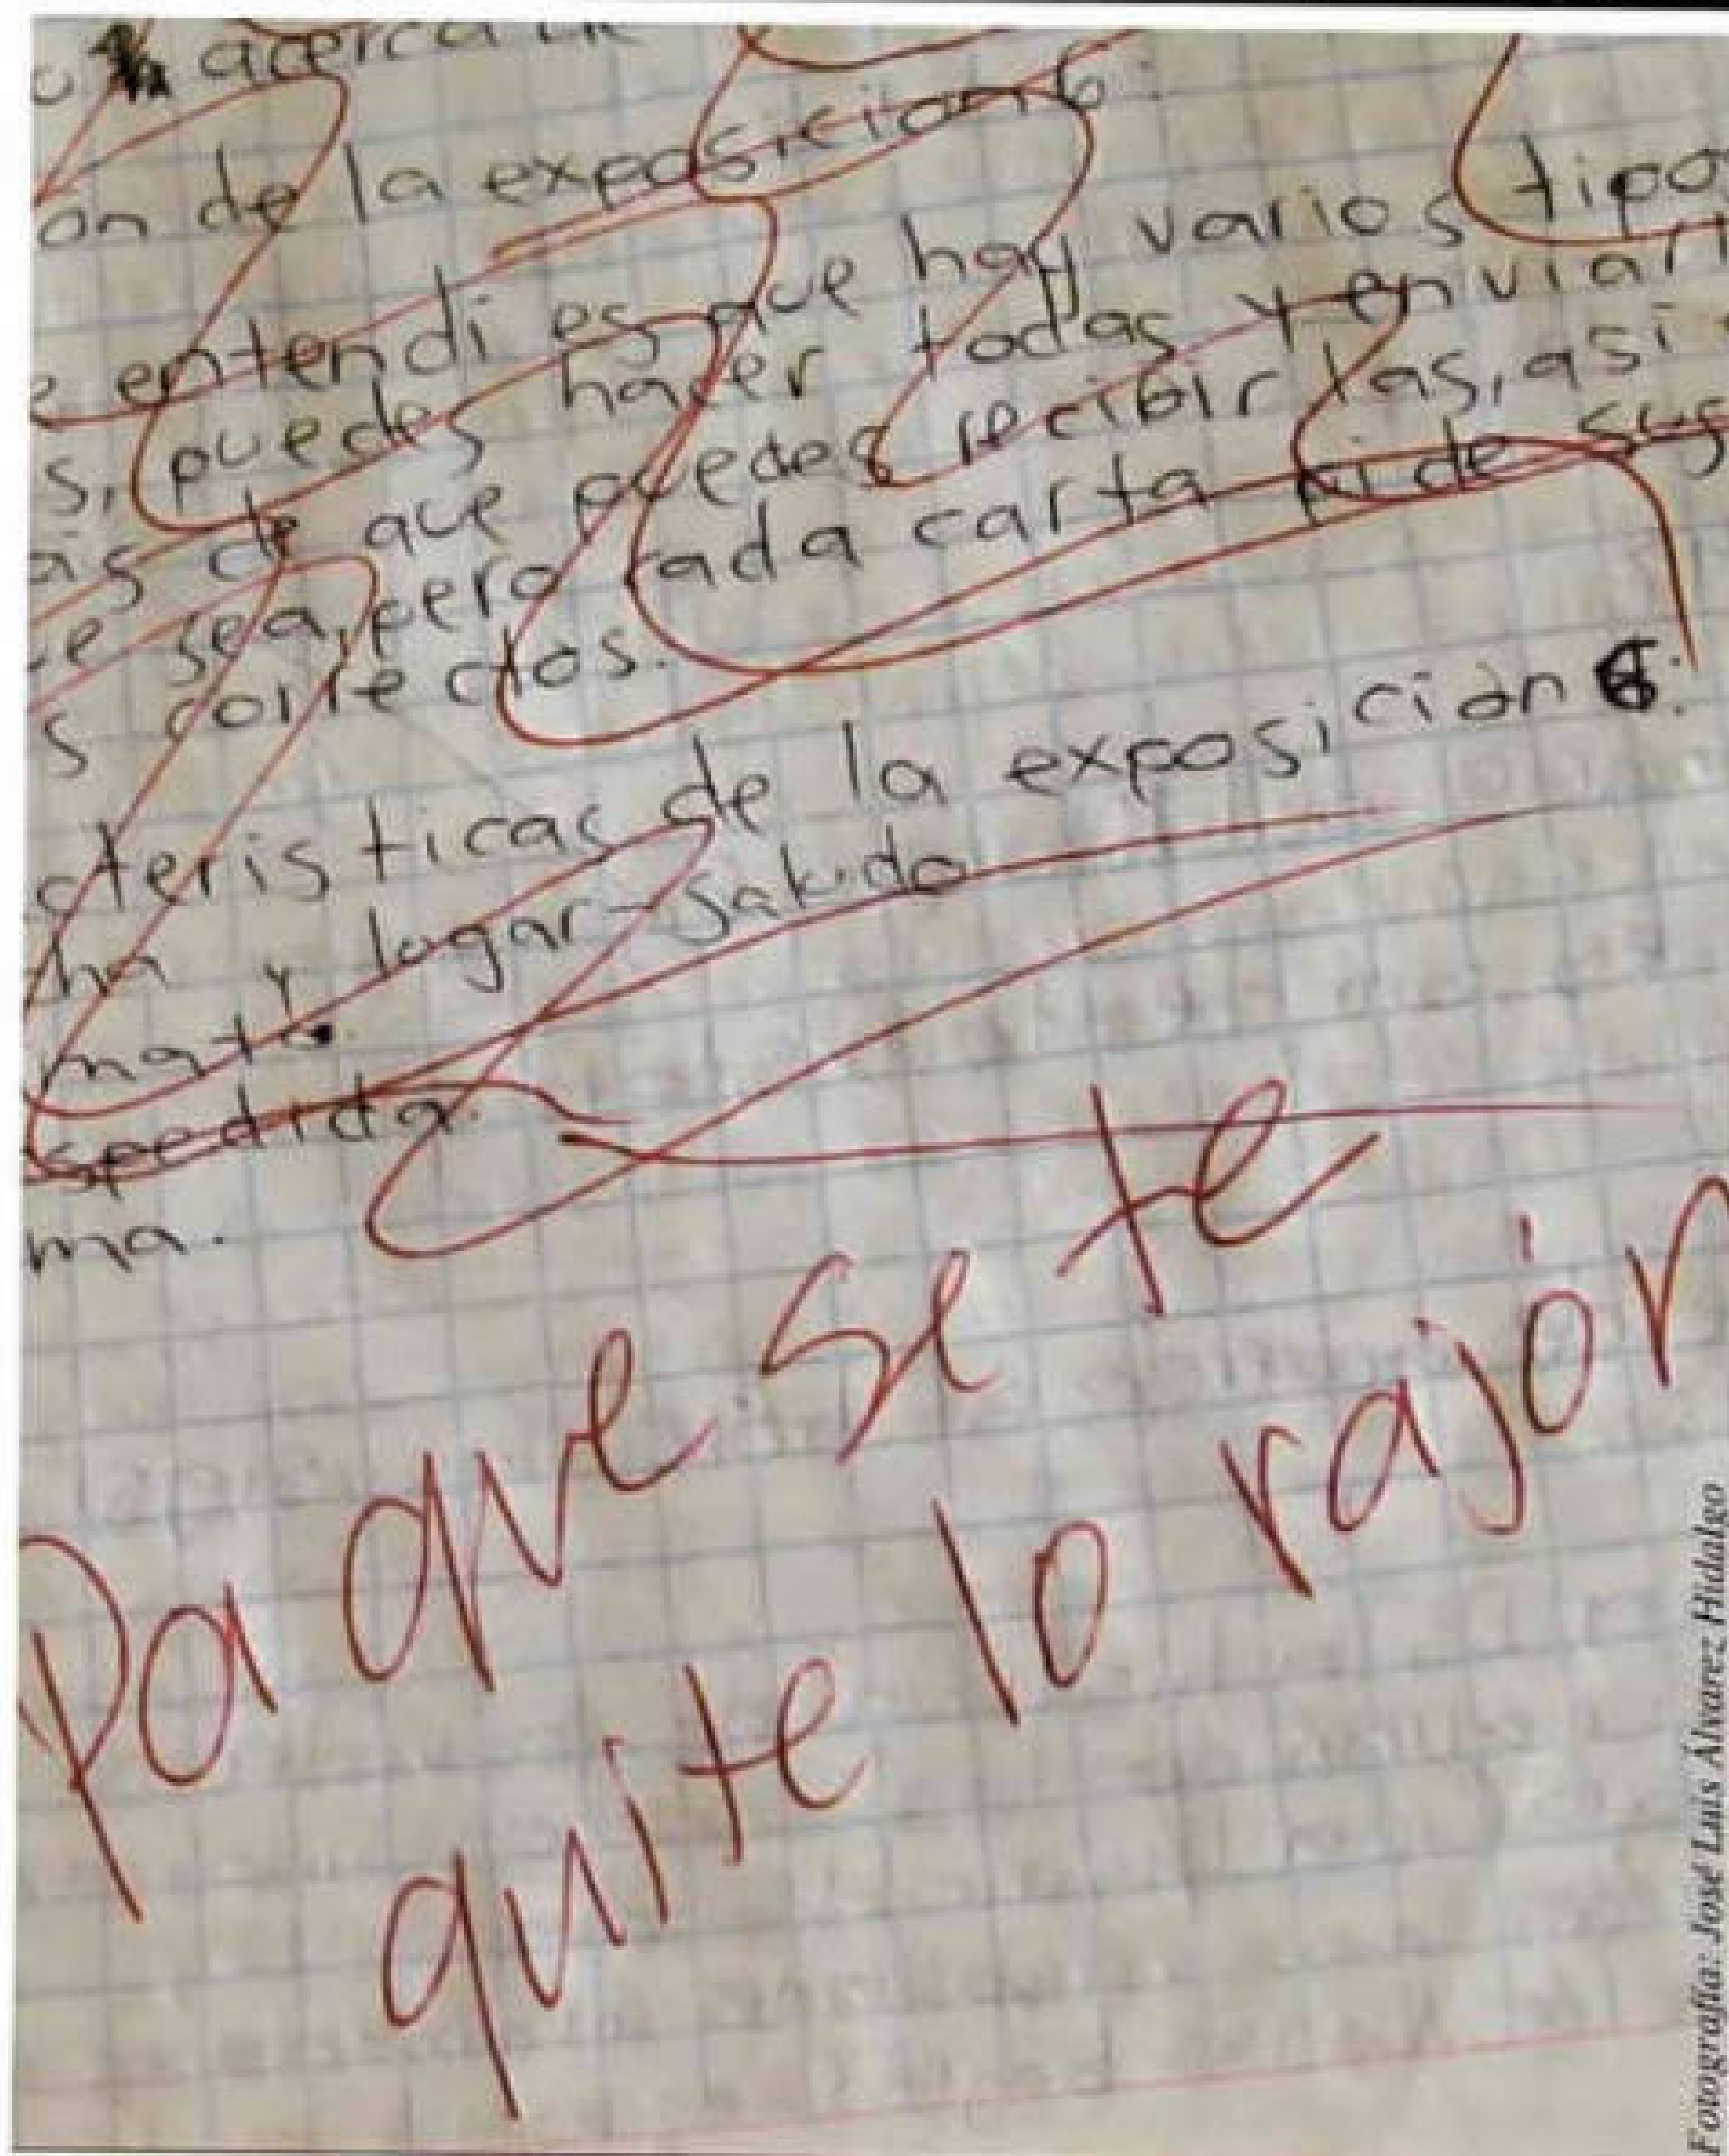 acerca
on de la exposicion 6:
e entendi es que hay varios tipo
s, puedes hacer todas y enviarl
as de que puedes recibir las, asi
e sea, pero cada carta pide sus
s correctos.
cteristicas de la exposición 6:
ha y lugar-Saludo
mato.
spedida.
ma.
Pa que se te
quite lo rajón
Fotografía: José Luis Álvarez Hidalgo